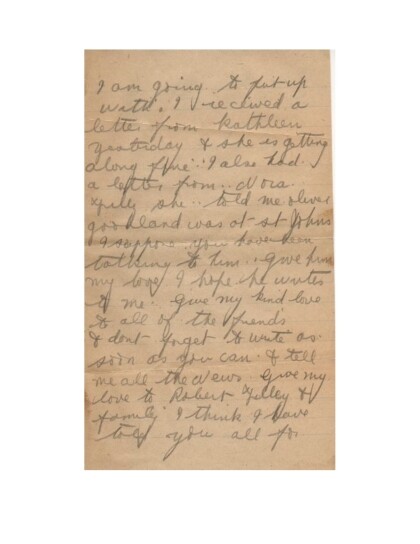 I am going to put up
with. I received a
letter from Kathleen
yesterday & she is getting
along fine. I also had
a letter from.. Nora
she.. told me oliver
goodland was at st Johns
I suppose you have been
talking to him.. give him
my love I hope he writes
to me. Give my kind love
to all of the friends
& dont forget to write as
soon as you can & tell
me all the News. Give my
love to Robert &
family I think I have
told you all for